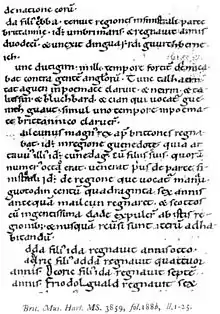 de natione eorū.
da filiꝰ eobba. tenuit regiones insinistrali parte
brittanniȩ. id÷ umbri maris. et regnauit annis
duodecī. & unxit dinguayrdi guurth berne
ich.
unc dutigirn inillo tempore fortit̄ dimica
bat contra gentē anglorū. Tunc talhaern
tat aguen inpoemate claruit. & neirin. & ta
liessin. & bluchbard. & cian qui uocat̄ gue
inth guaut. simul uno tempore inpoema
te brittannico claruer̄.
ailcunus magnꝰ rex apud brittones regna
bat. id÷ inregione guenedotȩ quia at
auus illiꝰ id÷ cunedag cū filiis suis quorū
numerꝰ octo erat. uenerat priꝰ de parte si
nistrali. id÷ de regione quȩ uocat̄ manau
guotodin centū quadraginta sex annis
antequā mailcun regnar&. & scottos
cū ingentissima clade expuler̄ ab istis re
gionibꝰ. & nusquā reuersi sunt iterū ad ha
bitandū.
dda filiꝰ ida regnauit annis octo
filiꝰ adda regnauit quattuor
annis. Deoric filiꝰ ida regnauit septē
annis. friodolguald regnauit sex
Brit. Mus. Harl. MS. 3859, fol. 188b, ll. 1-25.